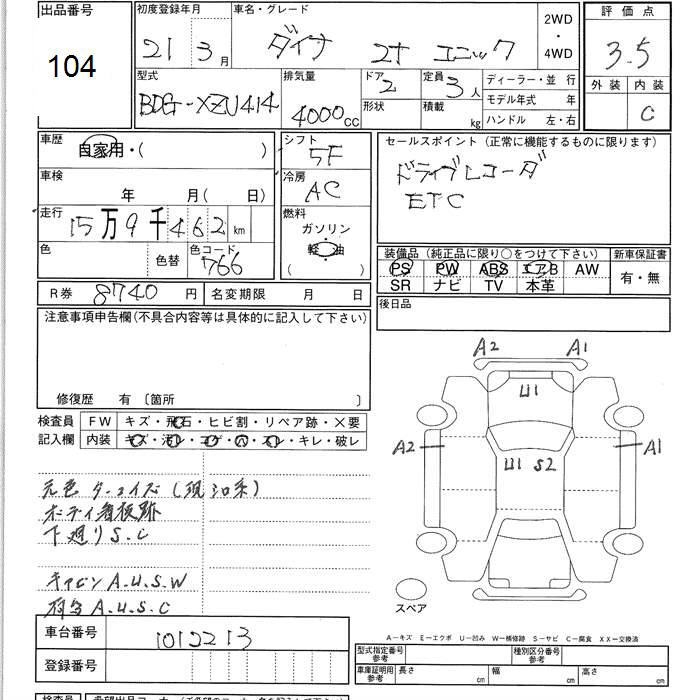 出品番号
104
初度登録年月
21 3月
車名・グレード
ダイナ 2t エニック
2WD
・
4WD
評価点
3.5
外装 内装
C
型式
BDG-XZU414
排気量
4000cc
ドア 2
形状
定員 3人
積載 kg
ディーラー・並 行
モデル年式 年
ハンドル 左・右
車歴
自家用・( )
車検
年 月( 日)
走行
15万9千462km
色
色替
色コード
766
シフト
5F
冷房
AC
燃料
ガソリン
軽油
( )
セールスポイント (正常に機能するものに限ります)
ドライブレコーダ
ETC
装備品 (純正品に限り○をつけて下さい)
PS PW ABS エアB AW
SR ナビ TV 本革
新車保証書
有・無
R券 8740円
名変期限 月 日
後日品
注意事項申告欄(不具合内容等は具体的に記入して下さい)
修復歴 有 〔箇所 〕
検査員
記入欄
FW キズ・飛石・ヒビ割・リペア跡・×要
内装 キズ・汚レ・コゲ・穴・スレ・キレ・破レ
A2 A1
U1
A2 A1
U1 S2
スペア
元色
ボディ 着板跡
下廻りS.C
キャビンA.U.S.W
荷台A.U.S.C
車台番号 1012213
登録番号
A−キズ E−エクボ U−凹み W−補修跡 S−サビ C−腐食 XX−交換済
型式指定番号
参考
種別区分番号
参考
車庫証明用
参考
長さ cm 幅 cm 高さ cm